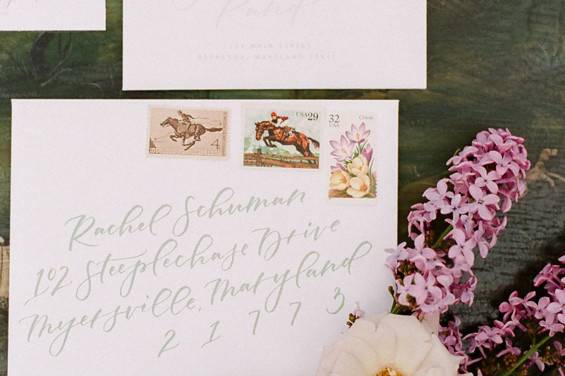 4
USA29
32
USA
Crocus
Rachel Schuman
102 Steeplechase Drive
Myersville, Maryland
21773